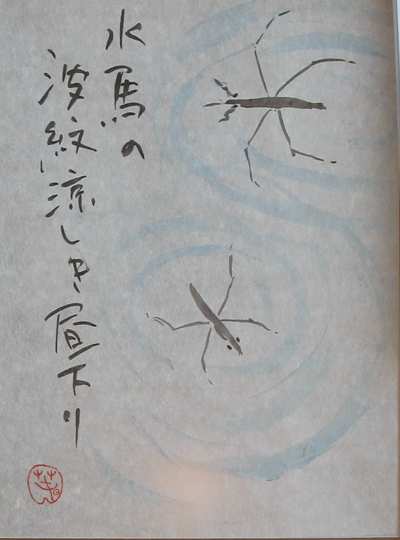 水馬の
波紋涼しや昼下り